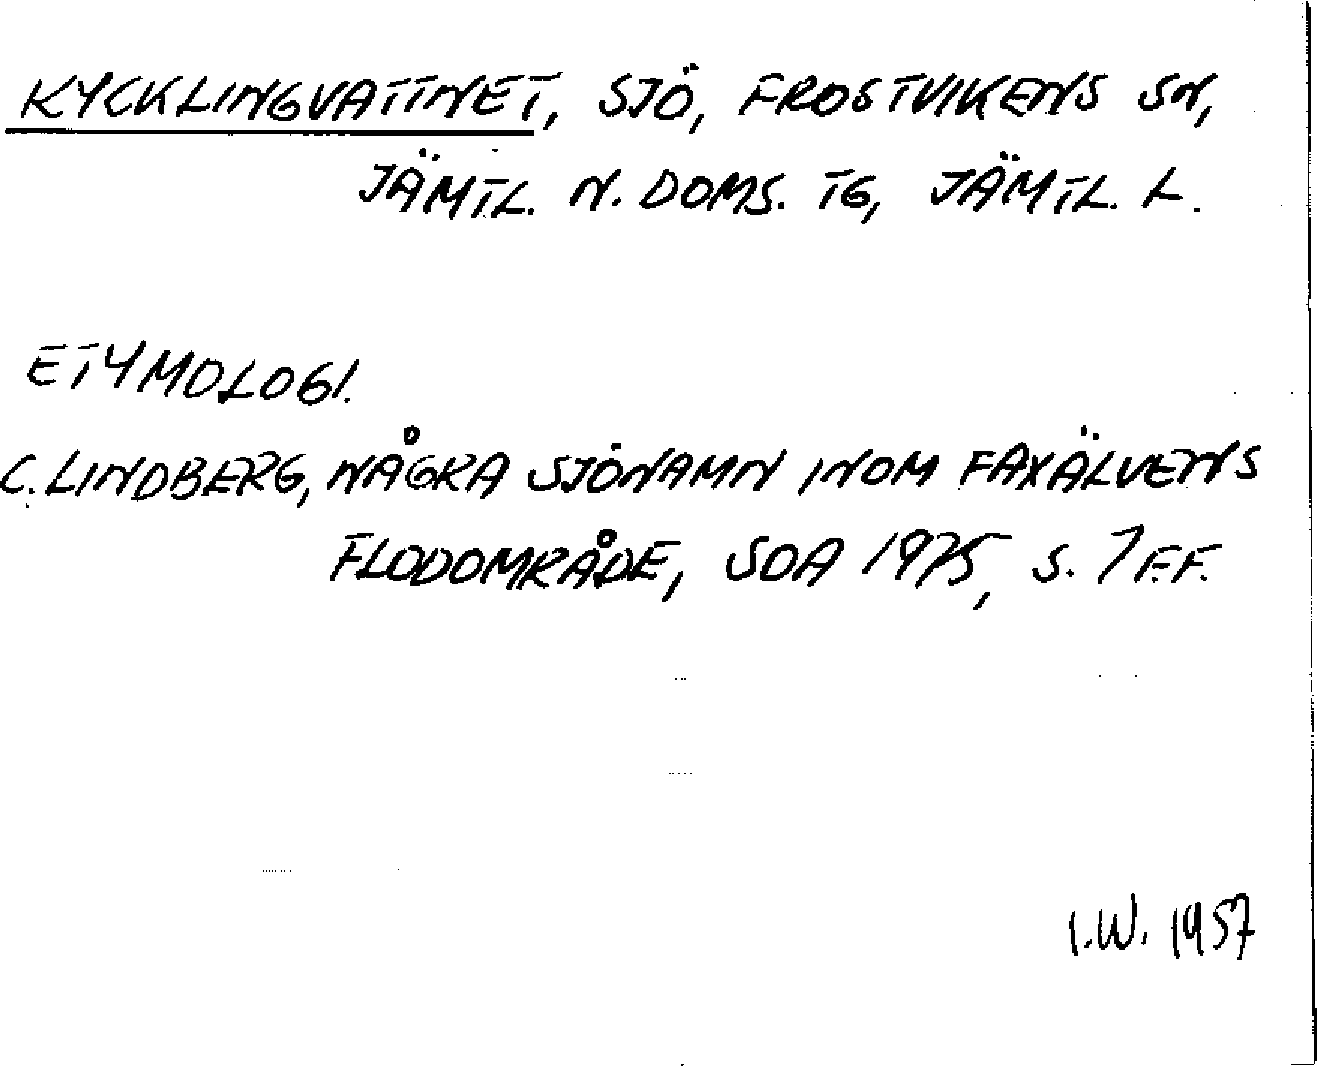 KYCKLINGVATTNET, SJÖ, FROSTVIKENS SN,
JÄMTL. N. DOMS. TG, JÄMTL. L.
ETYMOLOGI.
C. LINDBERG, NÅGRA SJÖNAMN INOM FAXÄLVENS
FLODOMRÅDE, SOA 1975, S. 7 F.F.
I.W. 1957